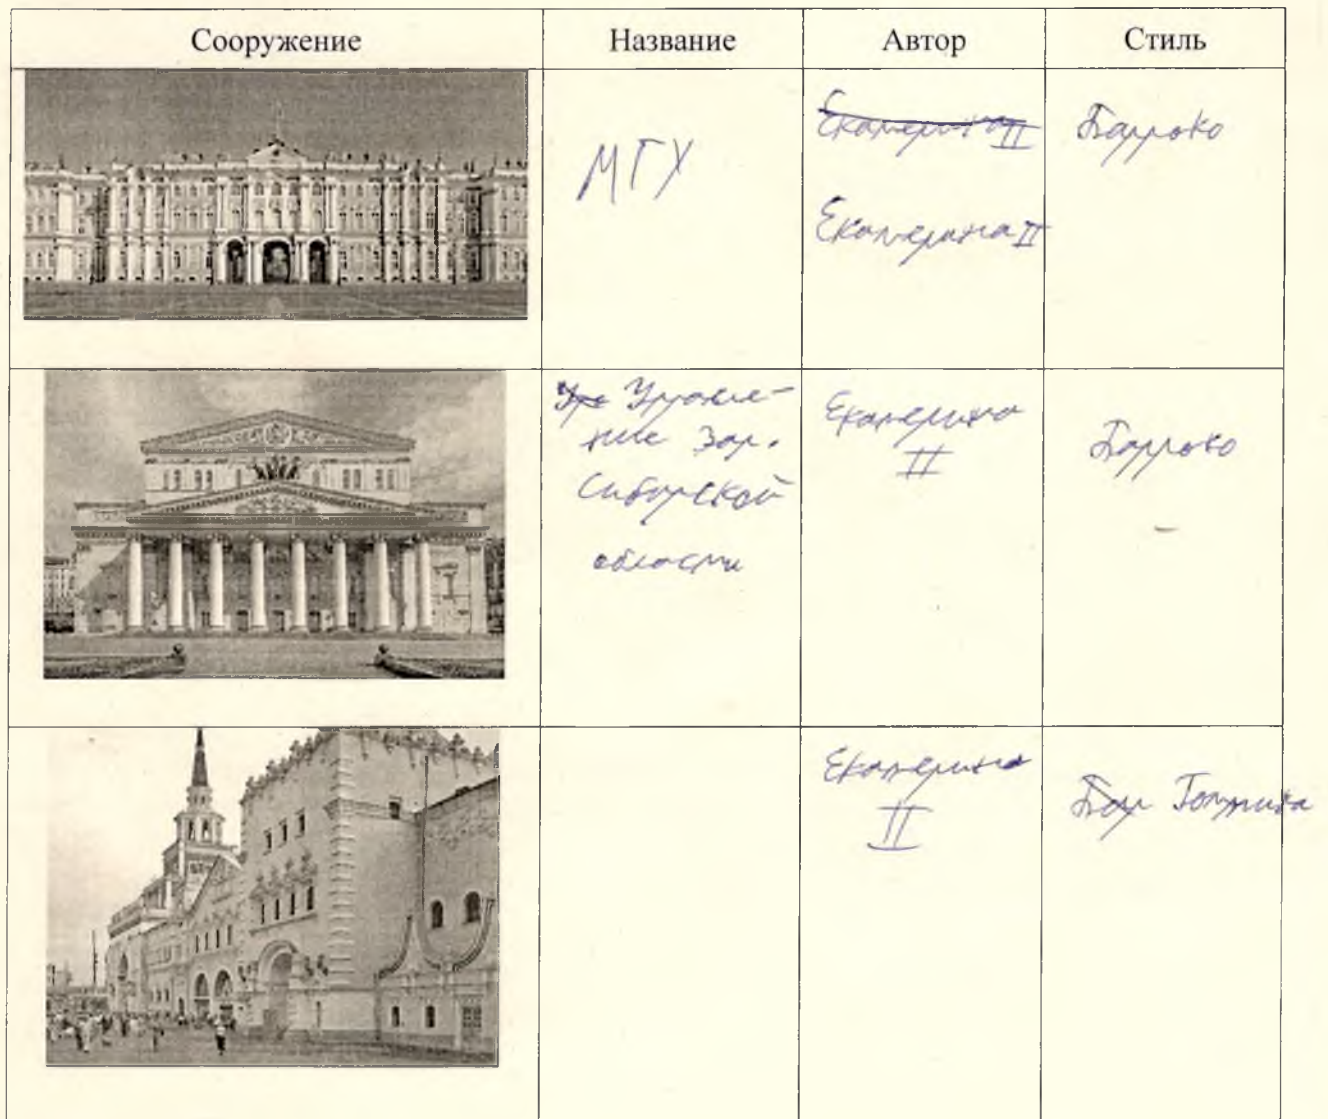 Сооружение Название Автор Стиль
МГУ
Екатерина II
Екатерина II
Барроко
Упр Управле-
ние Зап.
Сибирской
области
Екатерина
II
Барроко
Екатерина
II
Бар Готика